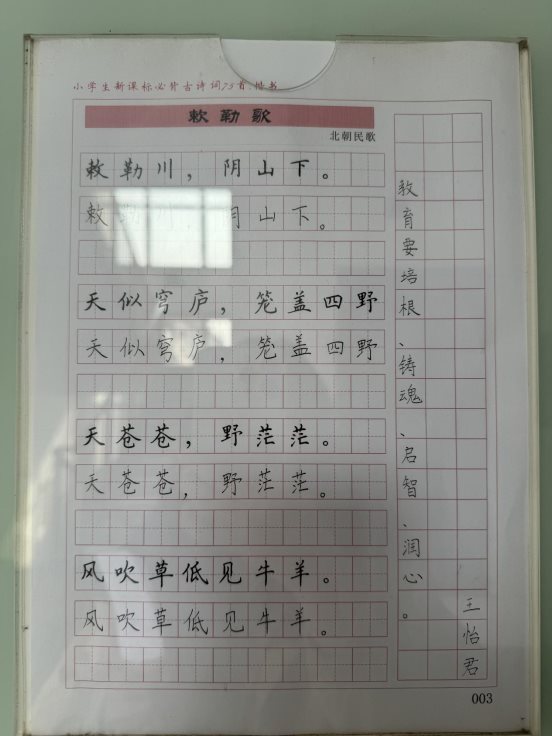 小学生新课标必背古诗词75首·楷书
敕勒歌
北朝民歌
敕勒川，阴山下。
敕勒川，阴山下。
天似穹庐，笼盖四野
天似穹庐，笼盖四野
天苍苍，野茫茫。
天苍苍，野茫茫。
风吹草低见牛羊。
风吹草低见牛羊。
教育要培根、铸魂、启智、润心。
王怡君
003